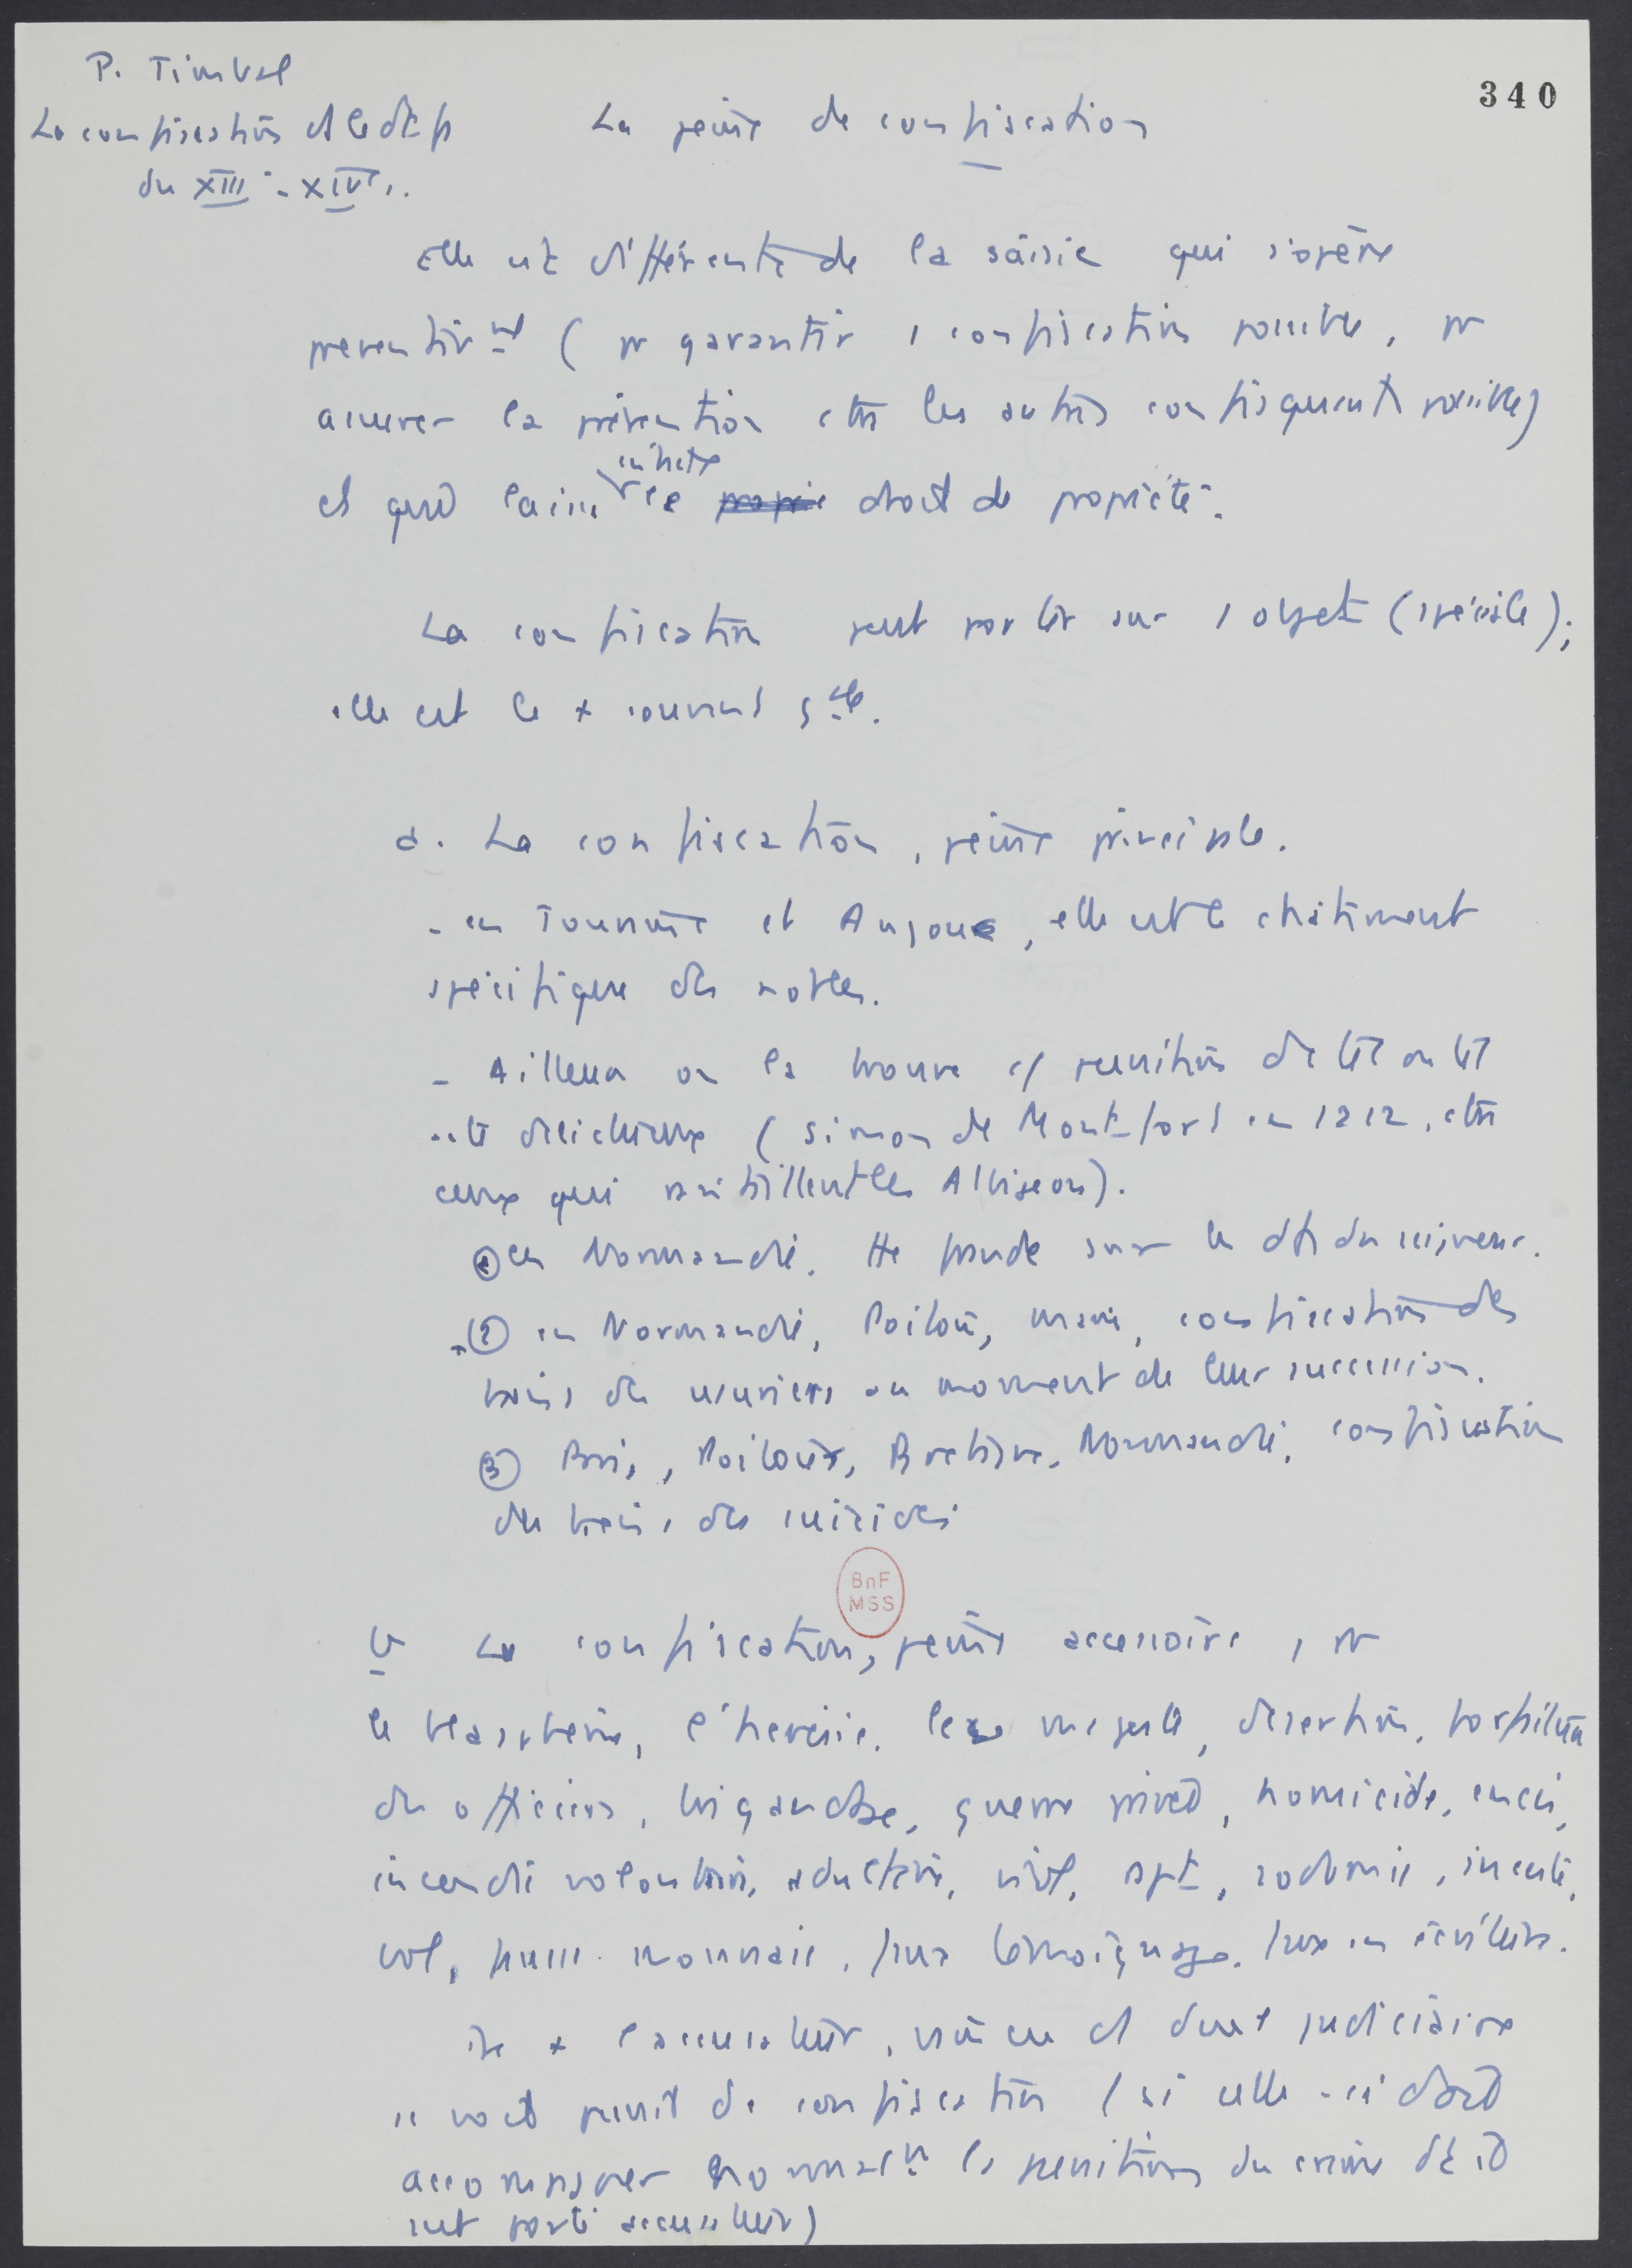 P. Timbal
La confiscation et le dt fs
du XIIIe - XIVe s.
340
La peine de confiscation
Elle est différente de la saisie qui s'opère
preventivt ( pr garantir 1 confiscation possible, pr
assurer la prévention ctre les autres confisquants possibles)
et qui laisse intacte le propri droit de propriété.
La confiscation peut porter sur 1 objet (spéciale);
elle est le + souvent gale.
a. La confiscation, peine principale.
- en Touraine et Anjou, elle est le chatiment
specifique des nobles.
- Ailleurs on la trouve c/ punition de tel ou tel
acte delictueux ( Simon de Montfort en 1212, ctre
ceux qui ravitaillent les Albigeois).
① en Normandie. Elle fraude sur le dt du seigneur.
② en Normandie, Poitou, Maine, confiscation des
biens des usuriers au moment de leur succession.
③ Paris, Poitou, Bretagne, Normandie, confiscation
des biens des suicidés
BnF
MSS
b La confiscation, peine accessoire, pr
le blaspheme, l'heresie, lese majesté, desertion, forfaiture
des officiers, brigandage, guerre privée, homicide, encis,
incendie volontaire, adultère, viol, rapt, sodomie, inceste,
vol, fausse monnaie, faux temoignage, faux en écriture.
De + l'accusateur, vaincu et duel judiciaire
se voit punit de confiscation ( si celle-ci doit
accompagner normalt la punition du crime dt il
est porté accusateur)